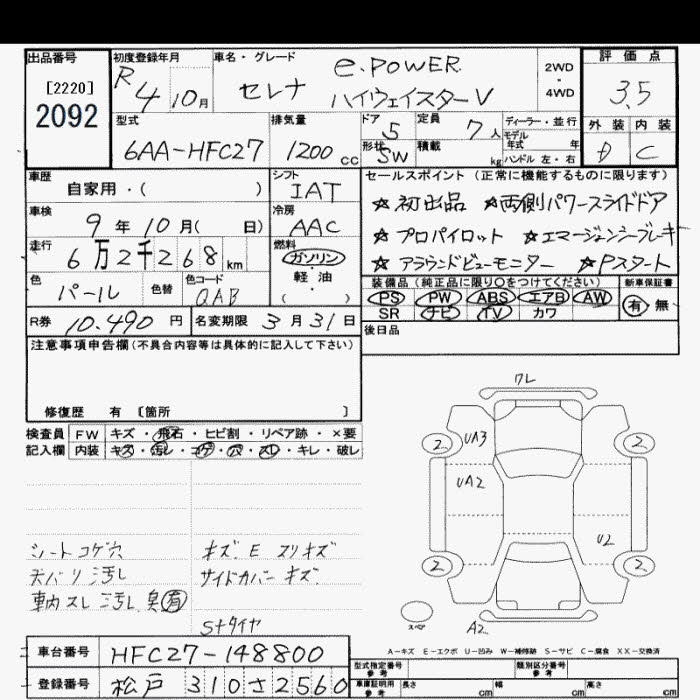 出品番号
[2220]
2092
初度登録年月
R4 10月
車名・グレード
セレナ e-POWER ハイウェイスターV
2WD・4WD
評価点
3.5
外装 内装
D C
型式
6AA-HFC27
排気量
1200 cc
ドア 5
形状 SW
定員 7人
積載 kg
ディーラー・並行
モデル年式 年
ハンドル 左・右
車歴
自家用・( )
シフト
IAT
車検
9年10月( 日)
冷房
AAC
走行
6万2千268km
燃料
ガソリン・軽油
( )
色
パール
色替
色コード
QAB
セールスポイント (正常に機能するものに限ります)
☆初出品 ☆両側パワースライドドア
☆プロパイロット ☆エマージェンシーブレーキ
☆アラウンドビューモニター ☆Pスタート
装備品(純正品に限り○をつけてください)
PS PW ABS エアB AW
SR ナビ TV カワ
新車保証書
有 無
R券 10.490円
名変期限 3月31日
後日品
注意事項申告欄(不具合内容等は具体的に記入して下さい)
修復歴 有 [箇所 ]
検査員記入欄
FW キズ・飛石・ヒビ割・リペア跡・×要
内装 キズ・汚レ・コゲ・穴・スレ・キレ・破レ
シートコゲ穴
天バリ汚レ
車内スレ汚レ臭有
キズ E スリキズ
サイドカバーキズ
Sタイヤ
ワレ
2 UA3 2
UA2
U2
2 2
スペア
A2
A-キズ E-エクボ U-凹み W-補修跡 S-サビ C-腐食 XX-交換済
車台番号 HFC27-148800
登録番号 松戸310さ2560
型式指定番号 参考
類別区分番号 参考
車庫証明用 参考 長さ cm 幅 cm 高さ cm